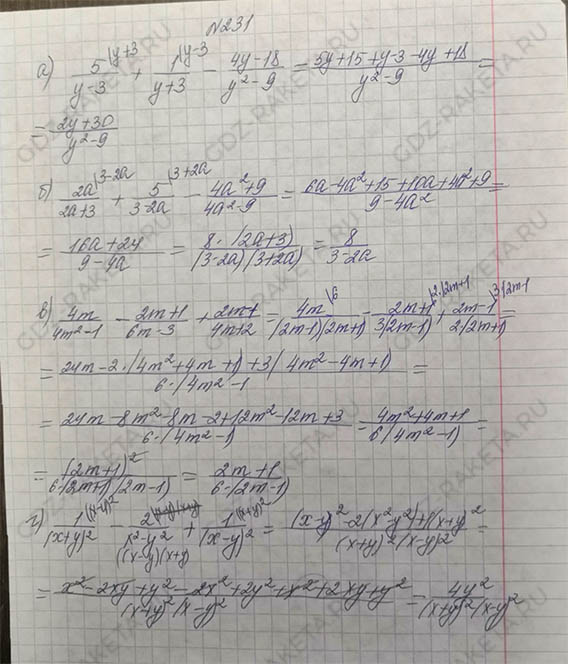 №231
а) 5\y+3 / y-3 + 1\y-3 / y+3 - 4y-18 / y²-9 = 5y+15+y-3-4y+18 / y²-9 =
= 2y+30 / y²-9
б) 2a\3-2a / 2a+3 + 5\3+2a / 3-2a - 4a²+9 / 4a²-9 = 6a-4a²+15+10a+4a²+9 / 9-4a² =
= 16a+24 / 9-4a = 8·(2a+3) / (3-2a)(3+2a) = 8 / 3-2a
в) 4m / 4m²-1 - 2m+1 / 6m-3 + 2m+1 / 4m+2 = 4m\6 / (2m-1)(2m+1) - 2m+1\2(2m+1 / 3(2m-1) + 2m-1\3(2m-1 / 2(2m+1) =
= 24m-2·(4m²+4m+1)+3(4m²-4m+1) / 6·(4m²-1 =
= 24m-8m²-8m-2+12m²-12m+3 / 6·(4m²-1) = 4m²+4m+1 / 6(4m²-1) =
= (2m+1)² / 6·(2m+1)(2m-1) = 2m+1 / 6·(2m-1)
г) 1\(x-y)² / (x+y)² - 2 / x²-y² + 1\(x+y)² / (x-y)² = (x-y)²-2(x²-y²)+(x+y)² / (x+y)²(x-y)² =
((x-y)(x+y)
= x²-2xy+y²-2x²+2y²+x²+2xy+y² / (x+y)²(x-y)² = 4y² / (x+y)²(x-y)²
GDZ-RAKETA.RU
GDZ-RAKETA.RU
GDZ-RAKETA.RU
GDZ-RAKETA.RU